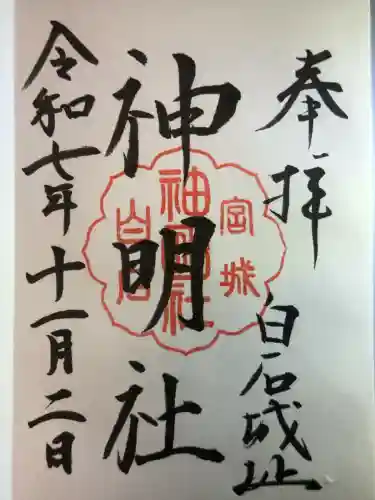 奉拝
白石城址
神明社
宮城
神明社
白石
令和七年十一月二日